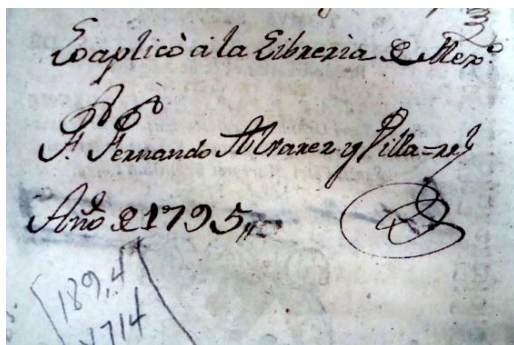 Lo aplicò à la Libreria de Mexco
F. Fernando Alvarez y Villa=rel
Año de 1795,,
189,4
1714